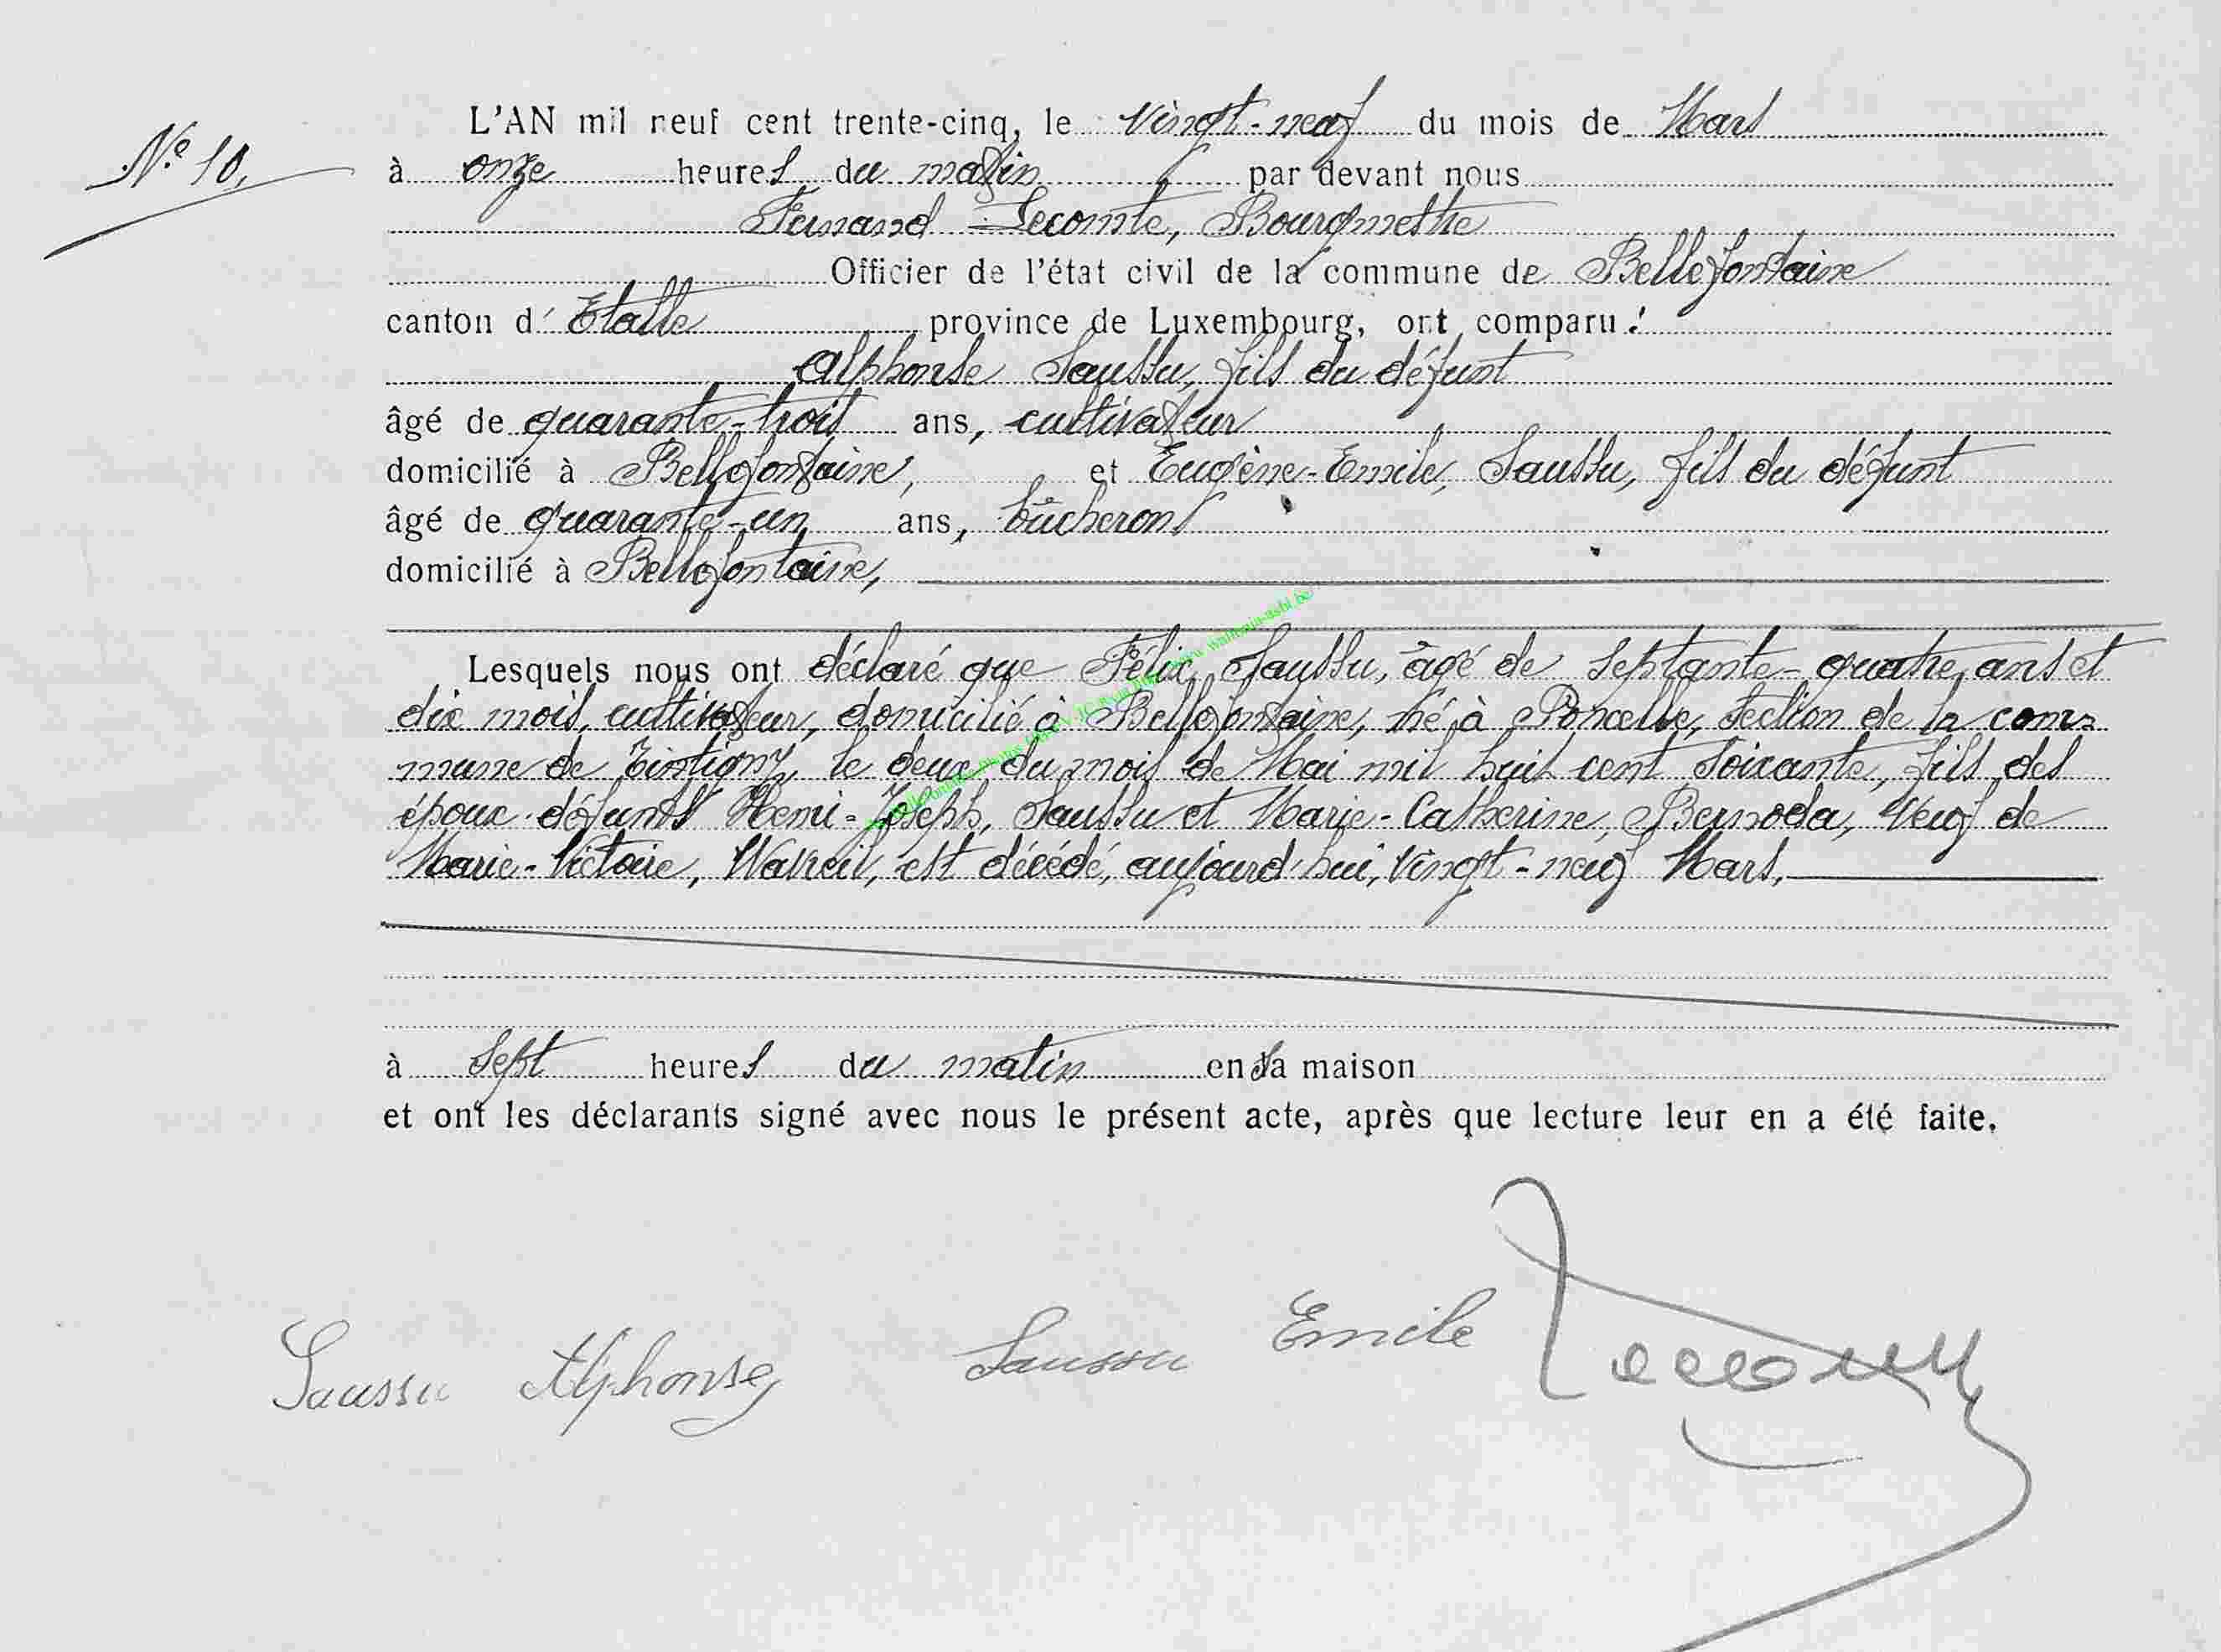 N.º 10.
L'AN mil neuf cent trente-cinq, le vingt-neuf du mois de Mars
à onze heures du matin par devant nous
Fernand Lecomte, Bourgmestre
Officier de l'état civil de la commune de Bellefontaine
canton d' Etalle province de Luxembourg, ont comparu :
Alphonse Saussu, fils du défunt
âgé de quarante-trois ans, cultivateur
domicilié à Bellefontaine, et Eugène-Emile, Saussu, fils du défunt
âgé de quarante-un ans, bûcheron
domicilié à Bellefontaine,
Lesquels nous ont déclaré que Félix, Saussu, âgé de septante-quatre ans et
dix mois, cultivateur, domicilié à Bellefontaine, né à Poncelle, section de la com-
mune de Tintigny, le deux du mois de Mai mil huit cent soixante, fils des
époux défunts Henri-Joseph, Saussu et Marie-Catherine, Bernoda, veuf de
Marie-Victoire, Wavreil, est décédé, aujourd'hui, vingt-neuf Mars,
à sept heures du matin en sa maison
et ont les déclarants signé avec nous le présent acte, après que lecture leur en a été faite.
Saussu Alphonse Saussu Emile